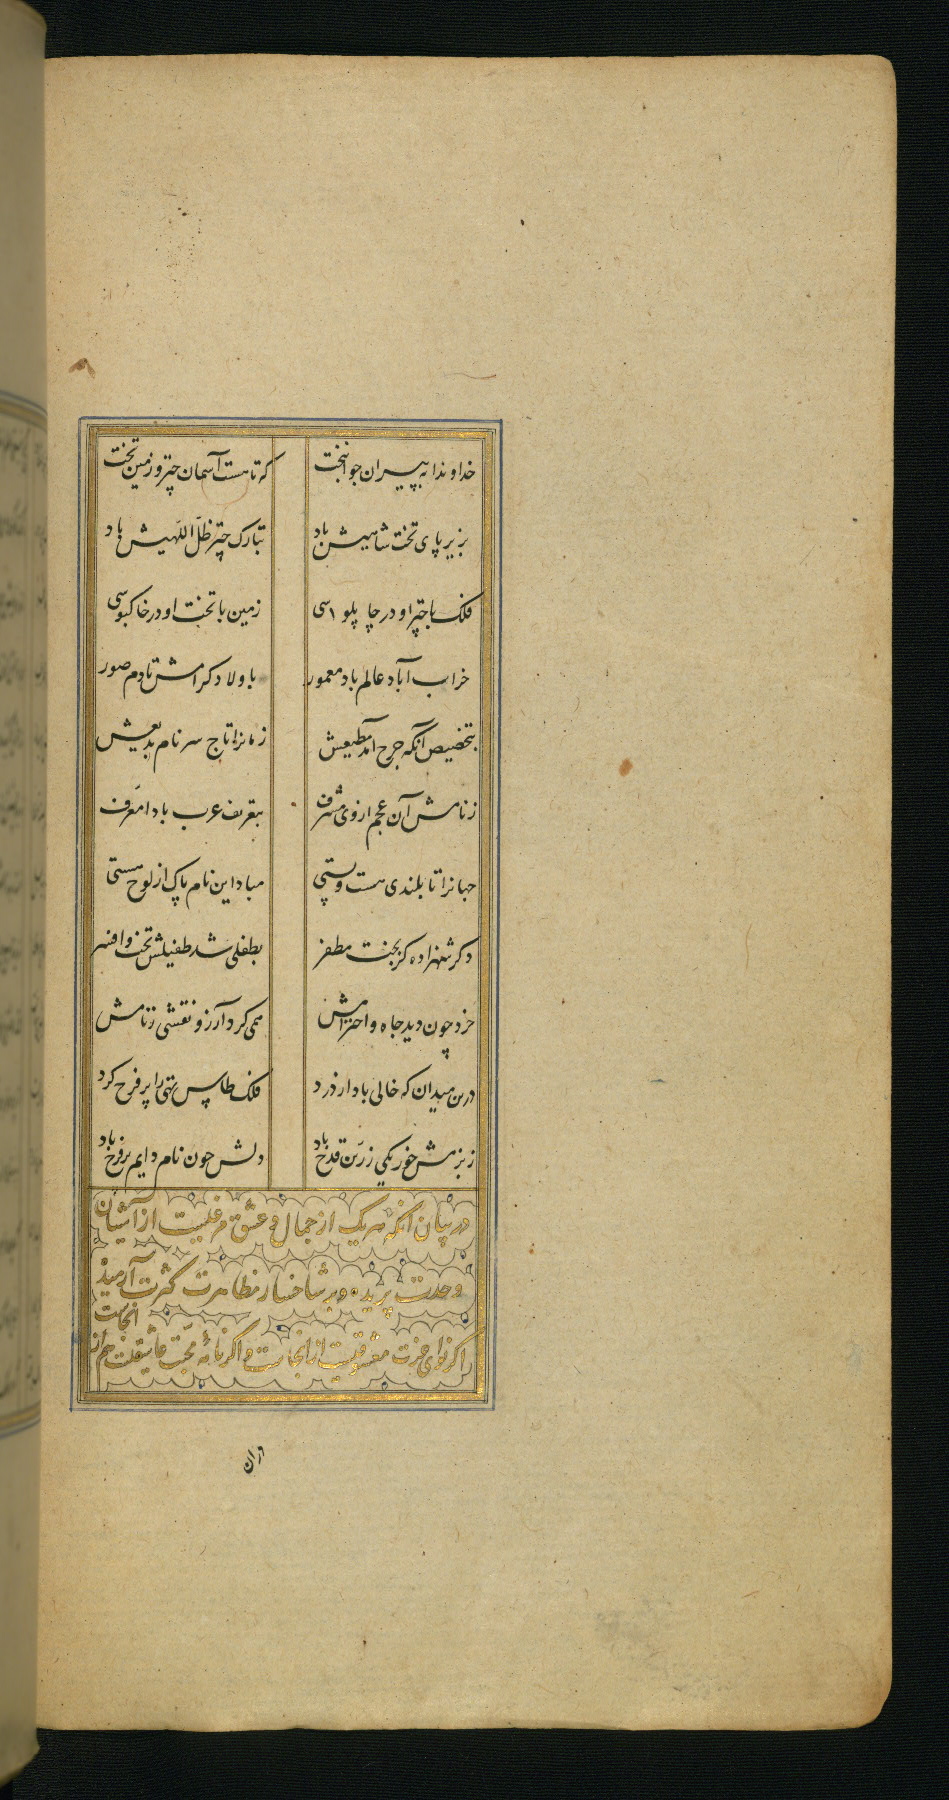 خداوندا به پیران جوانبخت که تا هست آسمان چتر و زمین تخت
بزیر پای تخت شاهیش باد تبارک چتر ظل اللهیش باد
فلک با چتر او در چاپلوسی زمین با تخت او در خاکبوسی
خراب آباد عالم باد معمور باولاد کرامش تا دم صور
بتخصیص آنکه چرخ آمد مطیعش زمانرا تاج سر نام بدیعش
زنامش آن عجم از وی مشرف بتعریف عرب بادا معرف
جهانرا تا بلندی هست و پستی مبادا این نام پاک از لوح هستی
دکر شهزاده کز بخت مظفر بطفلی شد طفیلش تخت و افسر
خرد چون دید جاه و احترامش همی کرد آرزو نقشی زنامش
درین میدان که خالی باد از درد فلک طاس تهی را پر فرح کرد
زبزمش خور یکی زرین قدح باد دلش چون نام دایم پر فرح باد
در بیان آنکه هر یک از جمال و عشق مرغیست از آشیان
وحدت پریده و بر شاخسار مظاهر کثرت آرمیده
اکر نوای عزت معشوقیست از انجاست و اکر نالهٔ محبت عاشقیست هم از انجاست
ازان